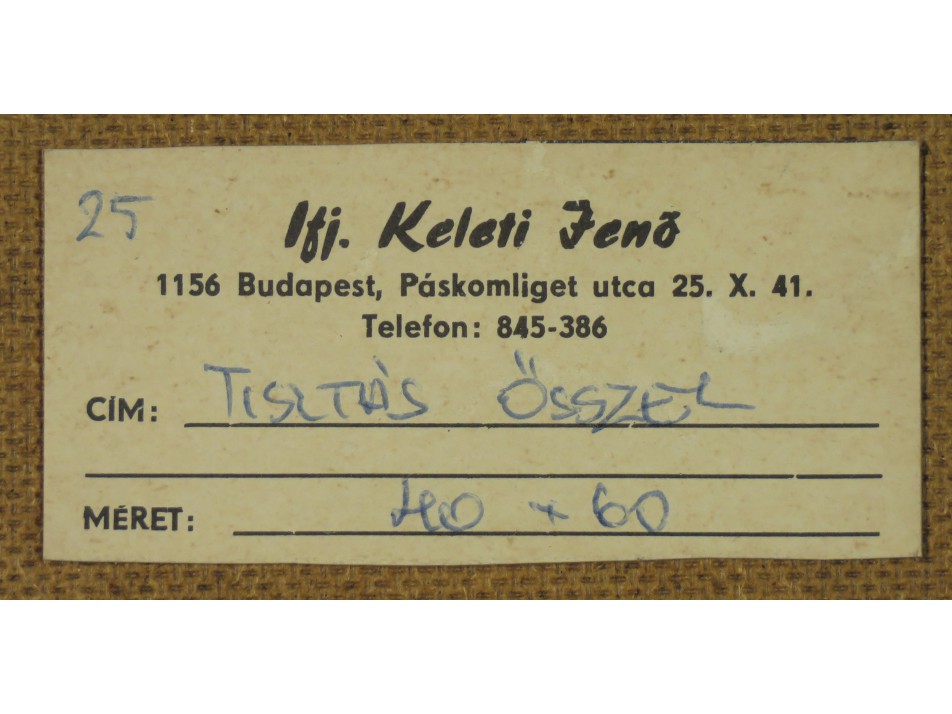 25
Ifj. Keleti Jenő
1156 Budapest, Páskomliget utca 25. X. 41.
Telefon: 845-386
CÍM: TISZTÁS ŐSSZEL
MÉRET: 40 + 60